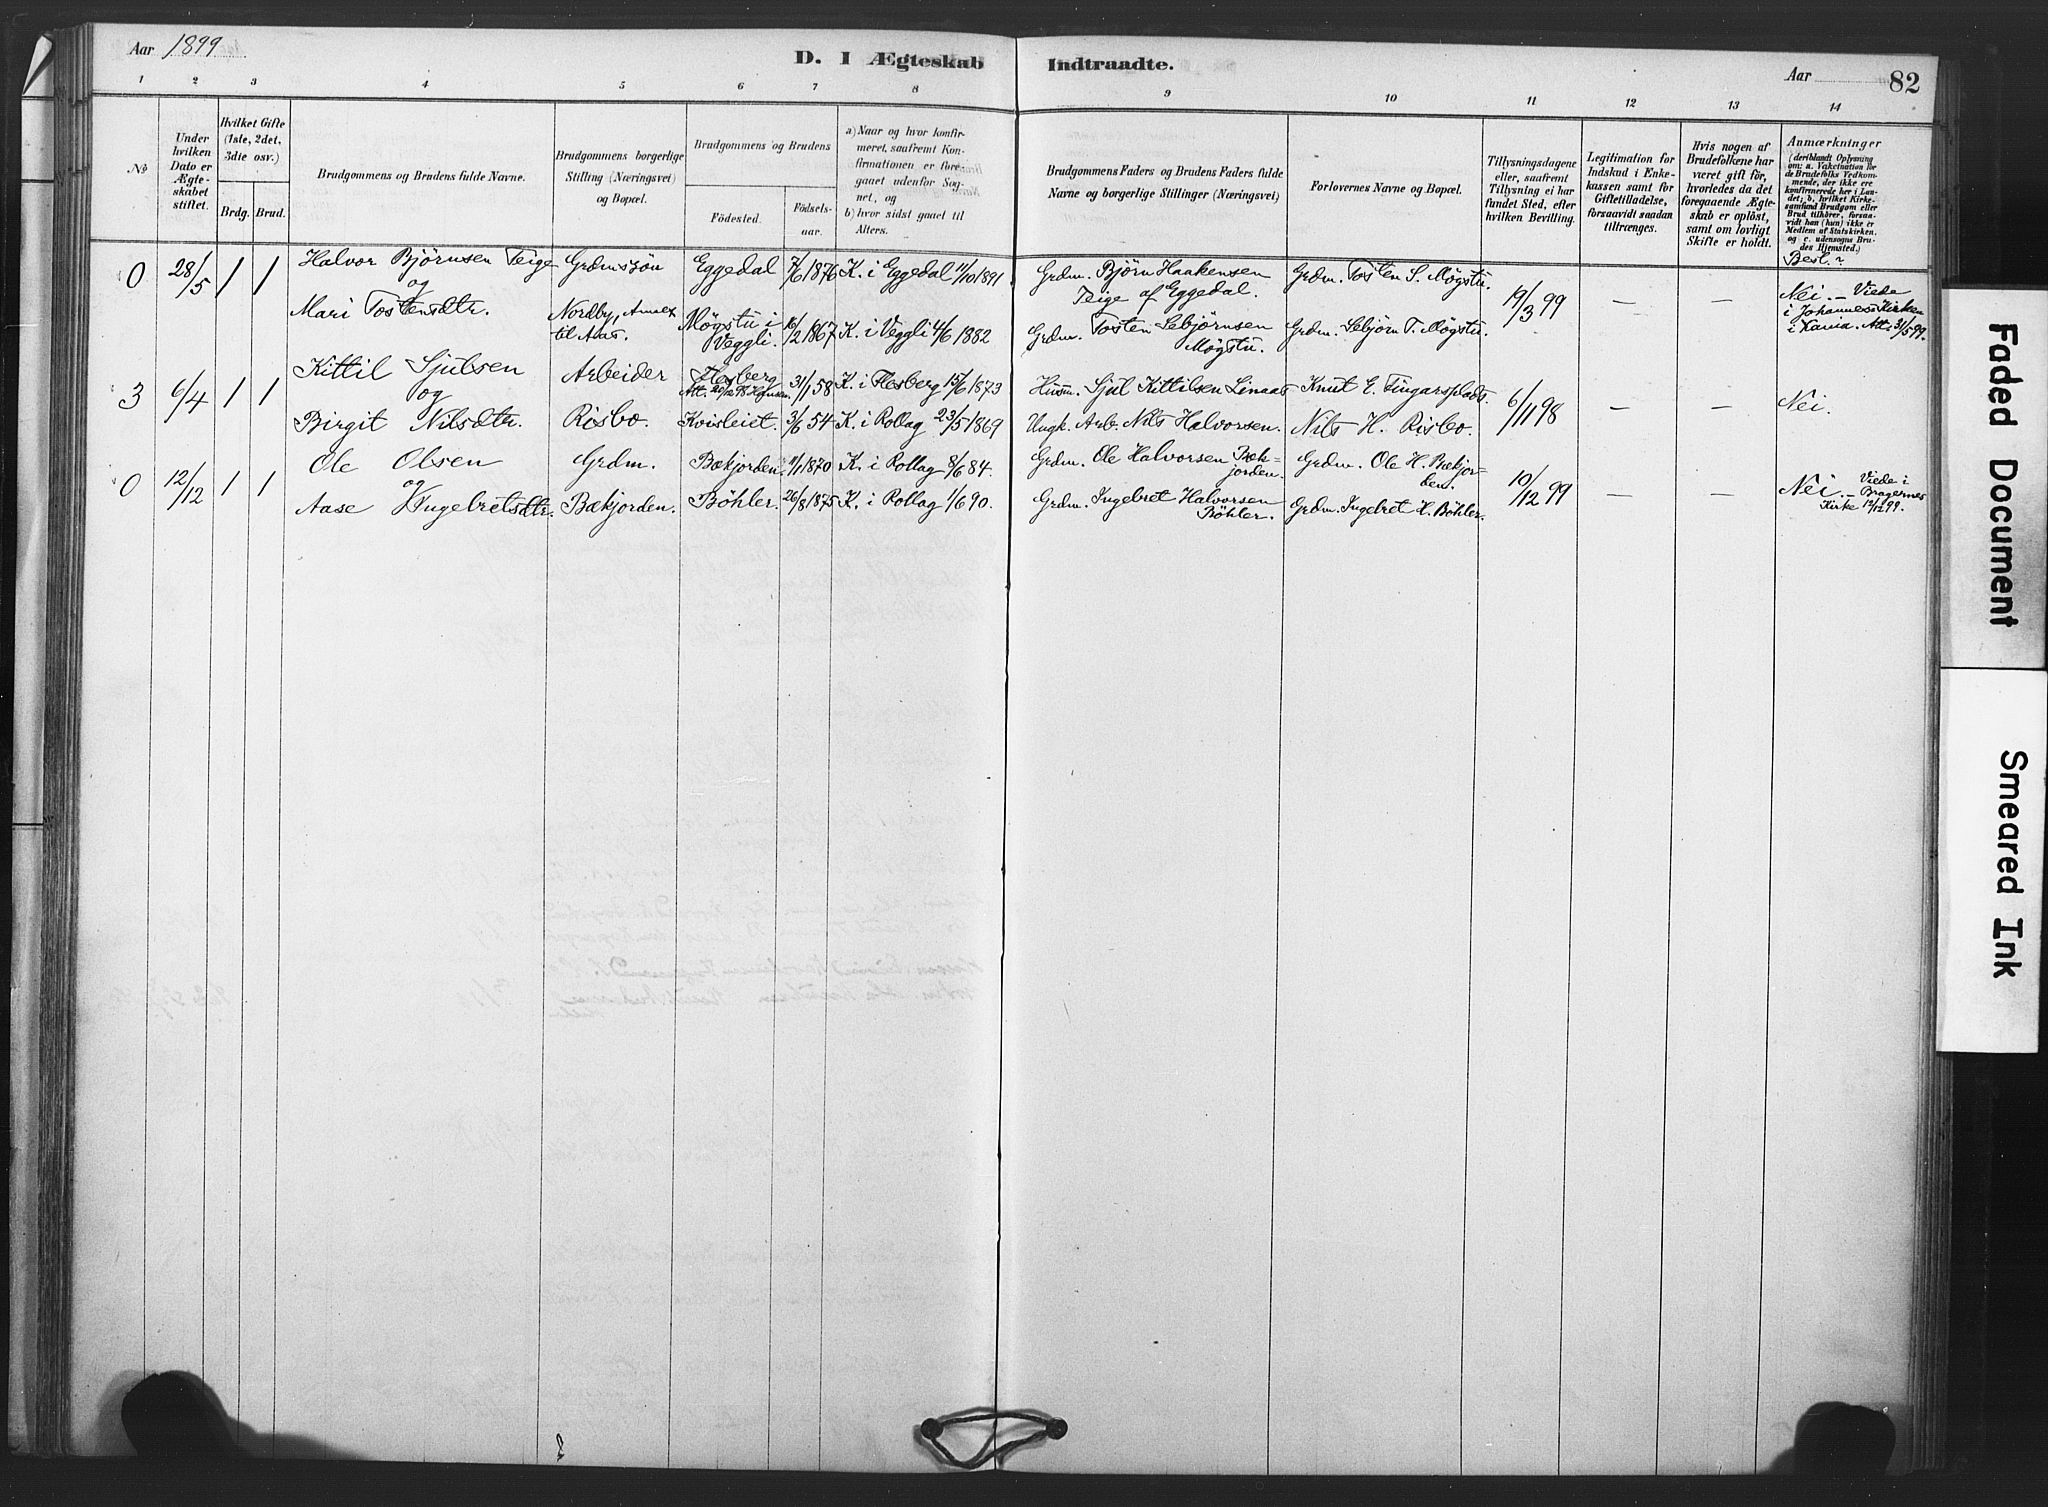 Aar 1899
D. I Ægteskab Indtraadte.
Aar
82
1 2 3 4 5 6 7 8 9 10 11 12 13 14
No
Under hvilken Dato er Ægteskabet stiftet.
Hvilket Gifte (1ste, 2det, 3die osv.)
Brdg. Brud.
Brudgommens og Brudens fulde Navne.
Brudgommens borgerlige Stilling (Næringsvei) og Bopæl.
Brudgommens og Brudens
Fødested.
Fødsels-aar.
a) Naar og hvor konfirmeret, saafremt Konfirmationen er foregaaet udenfor Sognet, og
b) hvor sidst gaaet til Alters.
Brudgommens Faders og Brudens Faders fulde Navne og borgerlige Stillinger (Næringsvei)
Forlovernes Navne og Bopæl.
Tillysningsdagene eller, saafremt Tillysning ei har fundet Sted, efter hvilken Bevilling.
Legitimation for Indskud i Enkekassen samt for Giftetilladelse, forsaavidt saadan tiltrænges.
Hvis nogen af Brudefolkene har været gift før, hvorledes da det foregaaende Ægteskab er opløst, samt om lovligt Skifte er holdt.
Anmærkninger
(deriblandt Oplysning om: a. Vakcination for de Brudefolks Vedkommende, der ikke ere konfirmerede her i Landet; b. hvilket Kirkesamfund Brudgom eller Brud tilhører, forsaavidt han (hun) ikke er Medlem af Statskirken. og c. udensogns Brudes Hjemsted.)
Besl.?
0 28/5 1 1 Halvor Bjørnsen Teige Grdmssøn Eggedal 7/6 1876 K. i Eggedal 11/10 1891 Grdm. Bjørn Haakensen Teige af Eggedal. Grdm. Tosten S. Møgstu. 19/3 99 — — Nei. — Viede i Johannes Kirken i Xania. Att. 31/5 99.
og
Mari Tostensdtr. Nordby, til Aas. Møgstu i Veggli. 16/2 1867 K. i Veggli 4/6 1882 Grdm. Tosten Sebjørnsen Møgstu. Grdm. Sebjørn T. Møgstu.
3 6/4 1 1 Kittil Sjulsen Arbeider Flesberg 31/1 58 K. i Flesberg 15/6 1873 Husm. Sjul Kittilsen Linaas Knut E. 6/11 98 — — Nei.
og
Birgit Nilsdtr. Risbo. Kvisleiet. 3/6 54 K. i Rollag 23/5 1869 Ungk. Arb. Nils Halvorsen. Nils H. Risbo.
0 12/12 1 1 Ole Olsen Grdm. Bækjorden. 11/1 1870 K. i Rollag 8/6 84. Grdm. Ole Halvorsen Bækjorden. Grdm. Ole H. Bækjorden. 10/12 99 — — Nei. — Viede i Bragernes Kirke 12/12 99.
og
Aase Ingebretsdtr. Bækjorden. Bøhler. 26/8 1875 K. i Rollag 1/6 90. Grdm. Ingebret Halvorsen Bøhler. Grdm. Ingebret H. Bøhler.
Faded Document
Smeared Ink